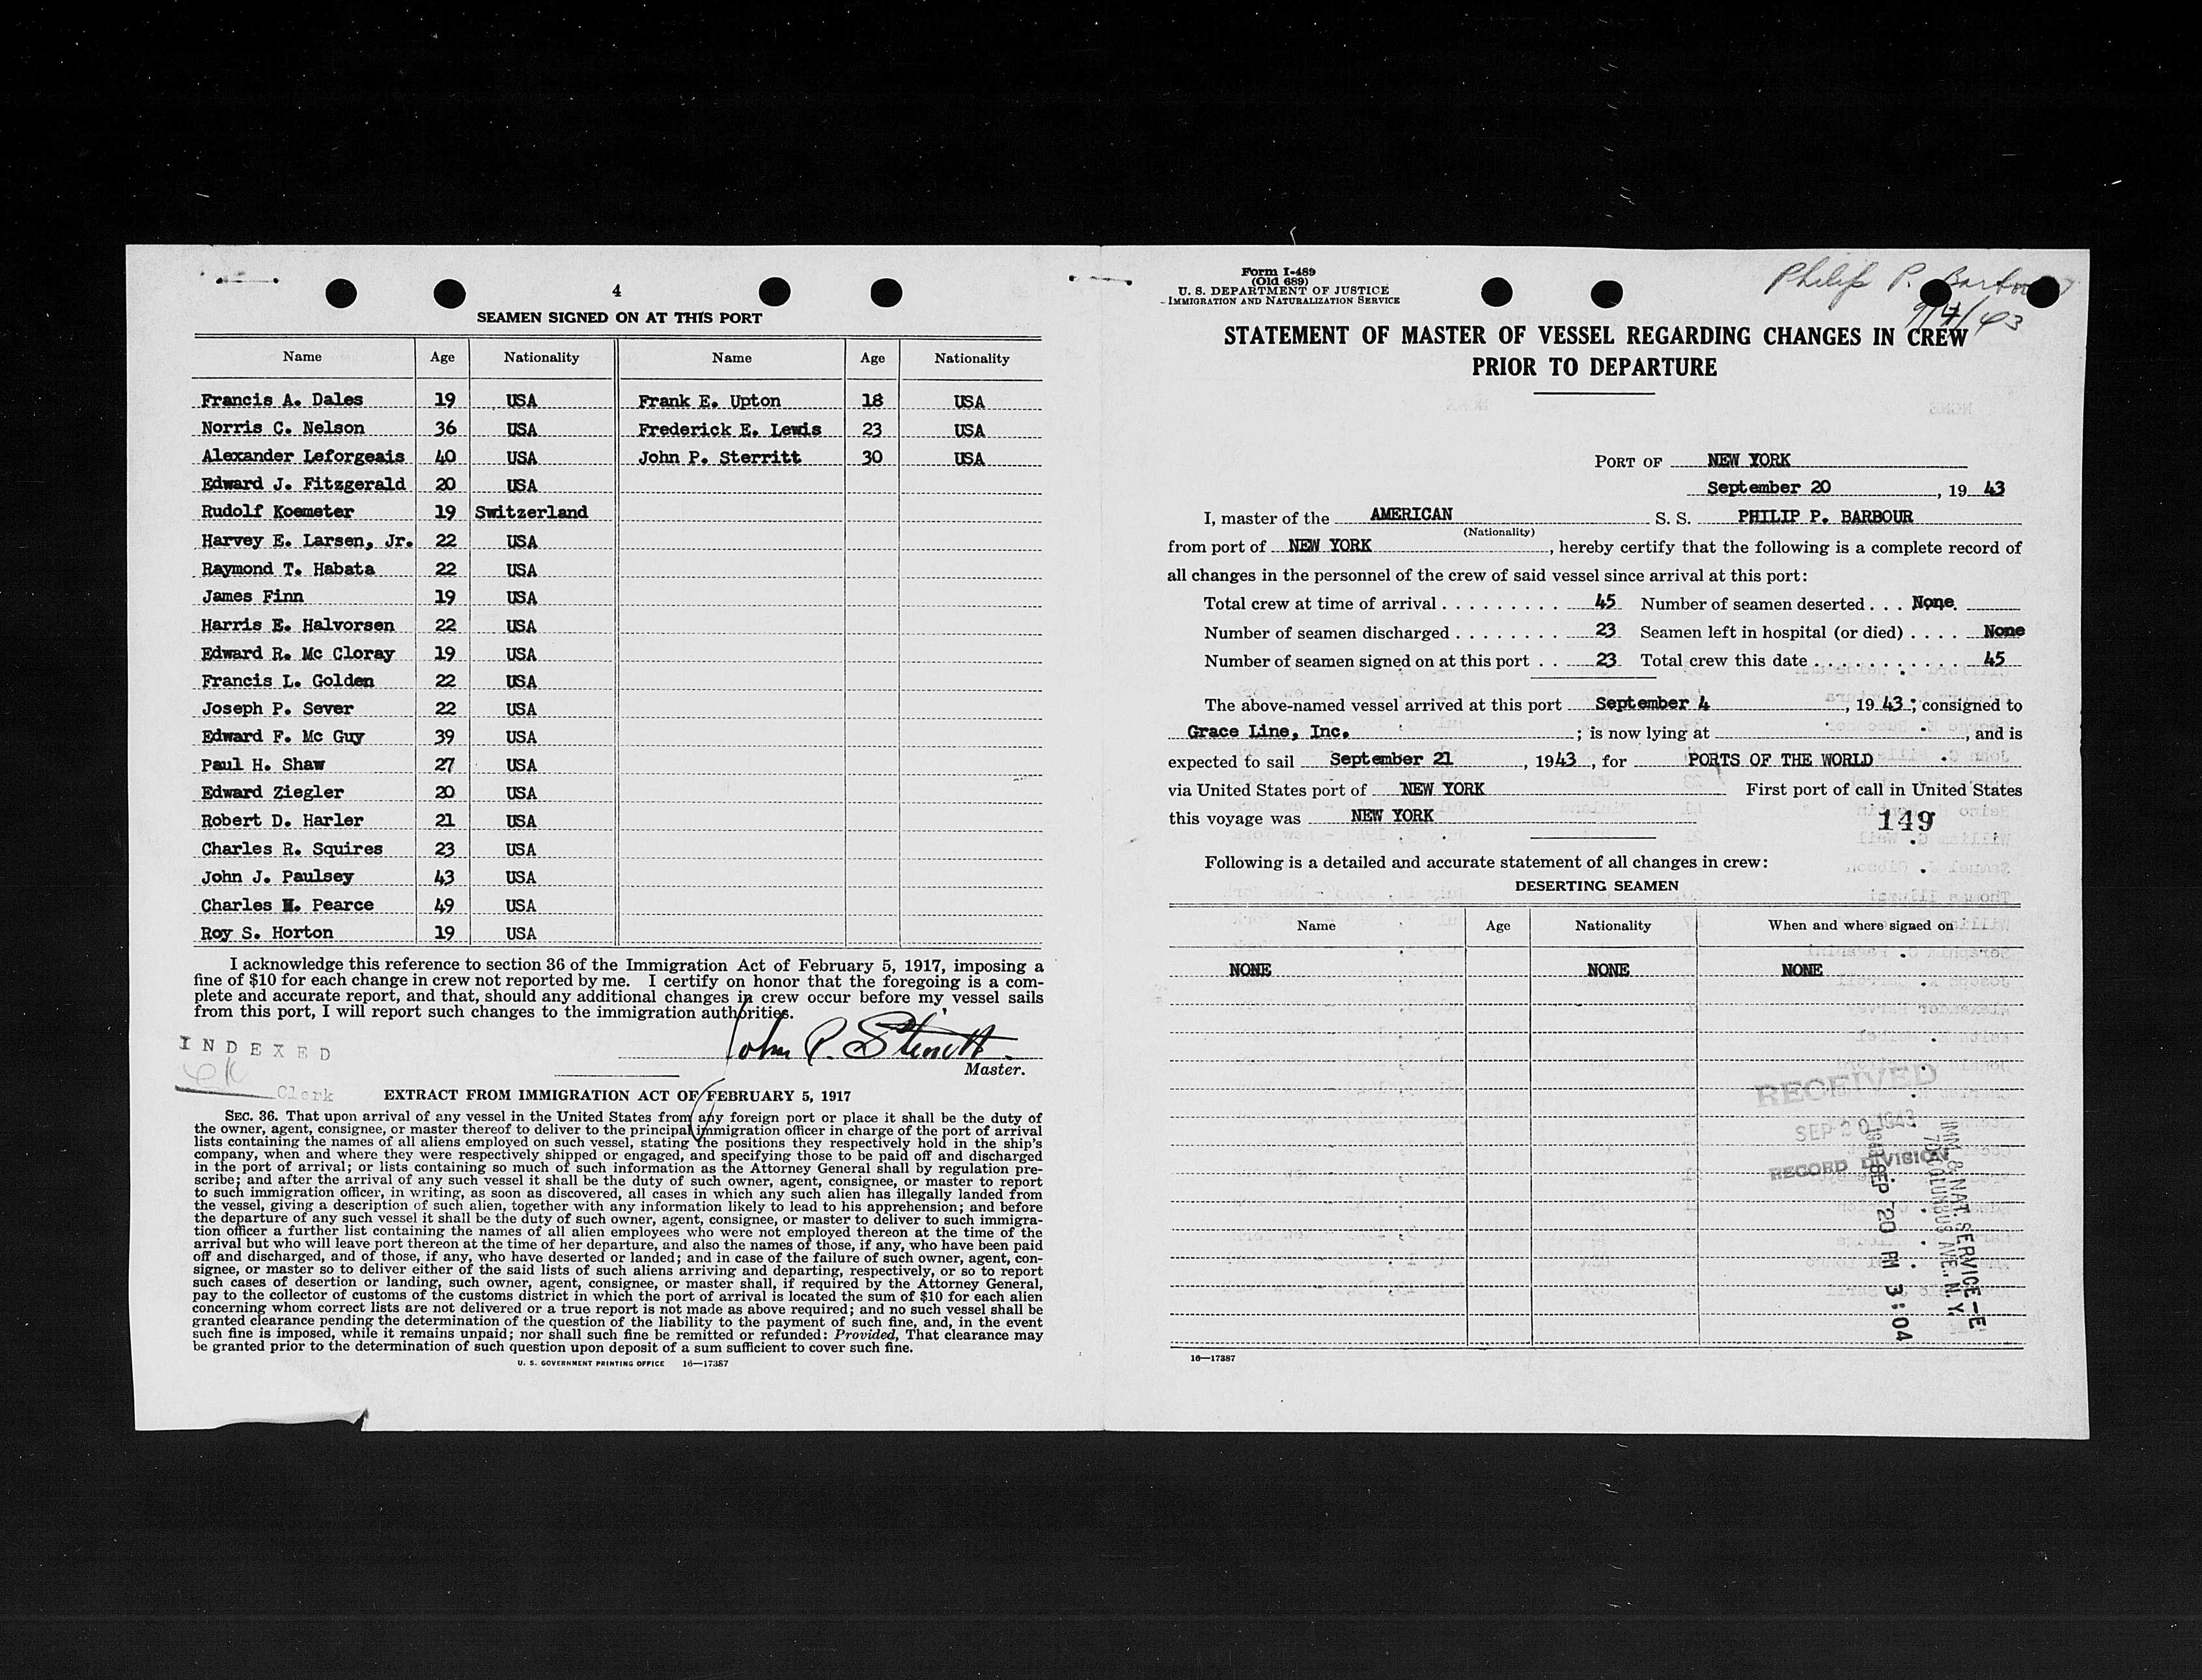 4
SEAMEN SIGNED ON AT THIS PORT
Name Age Nationality Name Age Nationality
Francis A. Dales 19 USA Frank E. Upton 18 USA
Norris C. Nelson 36 USA Frederick E. Lewis 23 USA
Alexander Leforgeais 40 USA John P. Sterritt 30 USA
Edward J. Fitzgerald 20 USA
Rudolf Koemeter 19 Switzerland
Harvey E. Larsen, Jr. 22 USA
Raymond T. Habata 22 USA
James Finn 19 USA
Harris E. Halvorsen 22 USA
Edward R. Mc Cloray 19 USA
Francis L. Golden 22 USA
Joseph P. Sever 22 USA
Edward F. Mc Guy 39 USA
Paul H. Shaw 27 USA
Edward Ziegler 20 USA
Robert D. Harler 21 USA
Charles R. Squires 23 USA
John J. Paulsey 43 USA
Charles H. Pearce 49 USA
Roy S. Horton 19 USA
I acknowledge this reference to section 36 of the Immigration Act of February 5, 1917, imposing a
fine of $10 for each change in crew not reported by me. I certify on honor that the foregoing is a com-
plete and accurate report, and that, should any additional changes in crew occur before my vessel sails
from this port, I will report such changes to the immigration authorities.
John P. Sterritt
Master.
INDEXED
Clerk
EXTRACT FROM IMMIGRATION ACT OF FEBRUARY 5, 1917
SEC. 36. That upon arrival of any vessel in the United States from any foreign port or place it shall be the duty of
the owner, agent, consignee, or master thereof to deliver to the principal immigration officer in charge of the port of arrival
lists containing the names of all aliens employed on such vessel, stating the positions they respectively hold in the ship's
company, when and where they were respectively shipped or engaged, and specifying those to be paid off and discharged
in the port of arrival; or lists containing so much of such information as the Attorney General shall by regulation pre-
scribe; and after the arrival of any such vessel it shall be the duty of such owner, agent, consignee, or master to report
to such immigration officer, in writing, as soon as discovered, all cases in which any such alien has illegally landed from
the vessel, giving a description of such alien, together with any information likely to lead to his apprehension; and before
the departure of any such vessel it shall be the duty of such owner, agent, consignee, or master to deliver to such immigra-
tion officer a further list containing the names of all alien employees who were not employed thereon at the time of the
arrival but who will leave port thereon at the time of her departure, and also the names of those, if any, who have been paid
off and discharged, and of those, if any, who have deserted or landed; and in case of the failure of such owner, agent, con-
signee, or master so to deliver either of the said lists of such aliens arriving and departing, respectively, or so to report
such cases of desertion or landing, such owner, agent, consignee, or master shall, if required by the Attorney General,
pay to the collector of customs of the customs district in which the port of arrival is located the sum of $10 for each alien
concerning whom correct lists are not delivered or a true report is not made as above required; and no such vessel shall be
granted clearance pending the determination of the question of the liability to the payment of such fine, and, in the event
such fine is imposed, while it remains unpaid; nor shall such fine be remitted or refunded: Provided, That clearance may
be granted prior to the determination of such question upon deposit of a sum sufficient to cover such fine.
U. S. GOVERNMENT PRINTING OFFICE 16—17387
Form I-489
(Old 689)
U. S. DEPARTMENT OF JUSTICE
IMMIGRATION AND NATURALIZATION SERVICE
Philip P. Barbour
9/4/43
STATEMENT OF MASTER OF VESSEL REGARDING CHANGES IN CREW
PRIOR TO DEPARTURE
PORT OF NEW YORK
September 20, 19 43
I, master of the AMERICAN S. S. PHILIP P. BARBOUR
(Nationality)
from port of NEW YORK, hereby certify that the following is a complete record of
all changes in the personnel of the crew of said vessel since arrival at this port:
Total crew at time of arrival . . . . . . . . . 45 Number of seamen deserted . . . None
Number of seamen discharged . . . . . . . . 23 Seamen left in hospital (or died) . . . . None
Number of seamen signed on at this port . . 23 Total crew this date . . . . . . . . . . . 45
The above-named vessel arrived at this port September 4, 19 43; consigned to
Grace Line, Inc.; is now lying at , and is
expected to sail September 21, 1943, for PORTS OF THE WORLD
via United States port of NEW YORK First port of call in United States
this voyage was NEW YORK
149
Following is a detailed and accurate statement of all changes in crew:
DESERTING SEAMEN
Name Age Nationality When and where signed on
NONE NONE NONE
RECEIVED
SEP 20 1943
RECORD DIVISION
IMM. & NAT. SERVICE-E
70 COLUMBUS AVE., N. Y.
1943 SEP 20 PM 3:04
16—17387